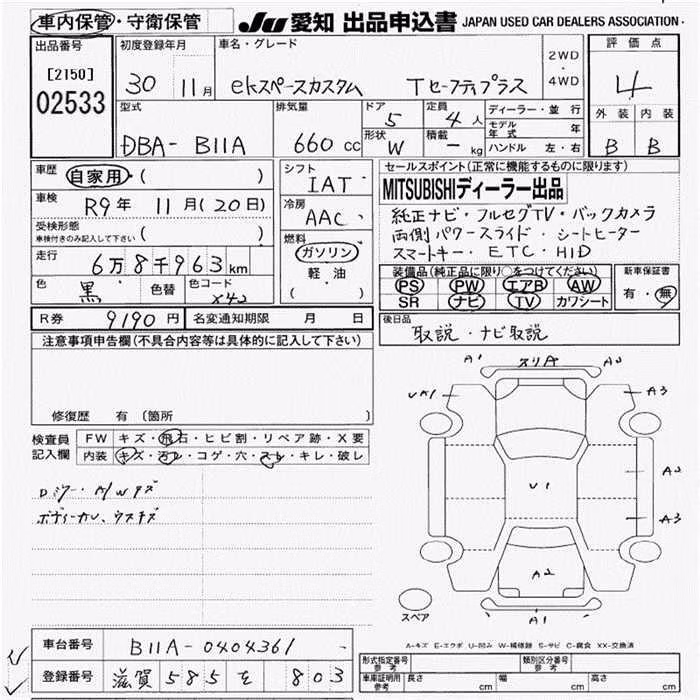 車内保管・守衛保管
JU 愛知 出品申込書 JAPAN USED CAR DEALERS ASSOCIATION
出品番号
[2150]
02533
初度登録年月
30 11月
車名・グレード
ekスペースカスタム Tセーフティプラス
2WD・4WD
評価点
4
外装 内装
B B
型式
DBA- B11A
排気量
660 cc
ドア
5
形状
W
定員
4人
積載
- kg
ディーラー・並行
モデル年式 年
ハンドル 左・右
車歴
自家用・( )
車検
R9年 11月(20日)
受検形態
車検付きのみ記入して下さい ( )
走行
6万8千963km
色
黒
色替
色コード
X42
シフト
IAT
冷房
AAC
燃料
ガソリン
軽油
( )
セールスポイント(正常に機能するものに限ります)
MITSUBISHIディーラー出品
純正ナビ・フルセグTV・バックカメラ
両側パワースライド・シートヒーター
スマートキー・ETC・HID
装備品(純正品に限り○をつけてください)
PS PW エアB AW
SR ナビ TV カワシート
新車保証書
有・無
R券 9190円 名変通知期限 月 日
後日品
取説・ナビ取説
注意事項申告欄(不具合内容等は具体的に記入して下さい)
修復歴 有(箇所 )
検査員記入欄
FW キズ・飛石・ヒビ割・リペア跡・X要
内装 キズ・汚レ・コゲ・穴・スレ・キレ・破レ
A1
A2
A3
U1
A2
A3
A2
A1
スペア
A-キズ E-エクボ U-凹み W-補修跡 S-サビ C-腐食 XX-交換済
車台番号 B11A-0404361
登録番号 滋賀 585 を 803
型式指定番号 参考
類別区分番号 参考
車庫証明用 参考 長さ cm 幅 cm 高さ cm